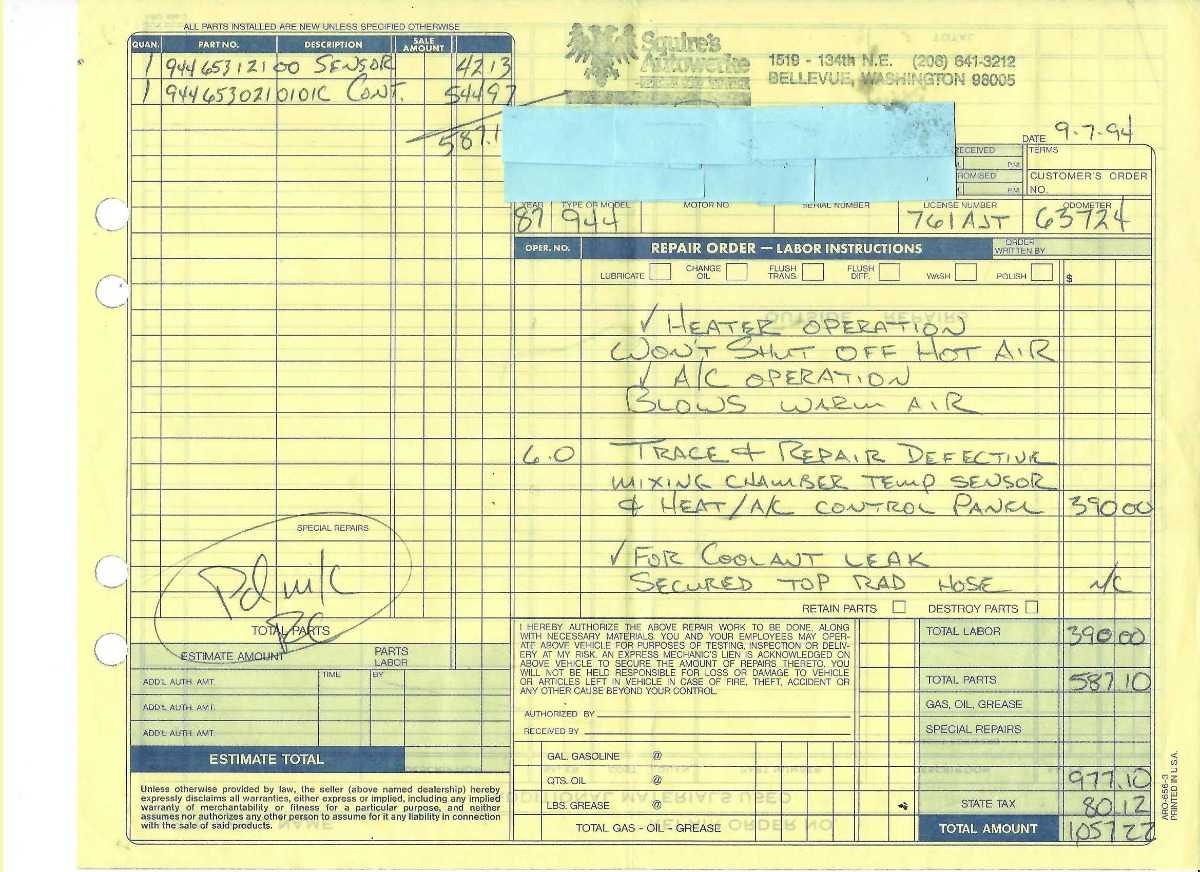 ALL PARTS INSTALLED ARE NEW UNLESS SPECIFIED OTHERWISE
QUAN. PART NO. DESCRIPTION SALE AMOUNT
1 944 653 121 00 SENSOR 42 13
1 944 653 021 01 01C CONT. 544 97
587.1
Squire's
Autowerke
1519 - 134th N.E. (206) 641-3212
BELLEVUE, WASHINGTON 98005
DATE 9-7-94
RECEIVED TERMS
P.M.
PROMISED CUSTOMER'S ORDER
P.M. NO.
YEAR TYPE OR MODEL MOTOR NO. SERIAL NUMBER LICENSE NUMBER ODOMETER
87 944 761AJT 63724
OPER. NO. REPAIR ORDER — LABOR INSTRUCTIONS ORDER WRITTEN BY
LUBRICATE CHANGE OIL FLUSH TRANS. FLUSH DIFF. WASH POLISH $
✓ HEATER OPERATION
WON'T SHUT OFF HOT AIR
✓ A/C OPERATION
BLOWS WARM AIR
6.0 TRACE & REPAIR DEFECTIVE
MIXING CHAMBER TEMP SENSOR
& HEAT/A/C CONTROL PANEL 390 00
✓ FOR COOLANT LEAK
SECURED TOP RAD HOSE N/C
RETAIN PARTS DESTROY PARTS
SPECIAL REPAIRS
Pd m/c
BC
TOTAL PARTS
ESTIMATE AMOUNT PARTS
LABOR
ADD'L AUTH. AMT. TIME BY
ADD'L AUTH. AMT.
ADD'L AUTH. AMT.
ESTIMATE TOTAL
Unless otherwise provided by law, the seller (above named dealership) hereby
expressly disclaims all warranties, either express or implied, including any implied
warranty of merchantability or fitness for a particular purpose, and neither
assumes nor authorizes any other person to assume for it any liability in connection
with the sale of said products.
I HEREBY AUTHORIZE THE ABOVE REPAIR WORK TO BE DONE, ALONG
WITH NECESSARY MATERIALS. YOU AND YOUR EMPLOYEES MAY OPER-
ATE ABOVE VEHICLE FOR PURPOSES OF TESTING, INSPECTION OR DELIV-
ERY AT MY RISK. AN EXPRESS MECHANIC'S LIEN IS ACKNOWLEDGED ON
ABOVE VEHICLE TO SECURE THE AMOUNT OF REPAIRS THERETO. YOU
WILL NOT BE HELD RESPONSIBLE FOR LOSS OR DAMAGE TO VEHICLE
OR ARTICLES LEFT IN VEHICLE IN CASE OF FIRE, THEFT, ACCIDENT OR
ANY OTHER CAUSE BEYOND YOUR CONTROL.
AUTHORIZED BY
RECEIVED BY
GAL. GASOLINE @
QTS. OIL @
LBS. GREASE @
TOTAL GAS - OIL - GREASE
TOTAL LABOR 390.00
TOTAL PARTS 587.10
GAS, OIL, GREASE
SPECIAL REPAIRS
977.10
STATE TAX 80.12
TOTAL AMOUNT 1057 22
ARO-656-3
PRINTED IN U.S.A.